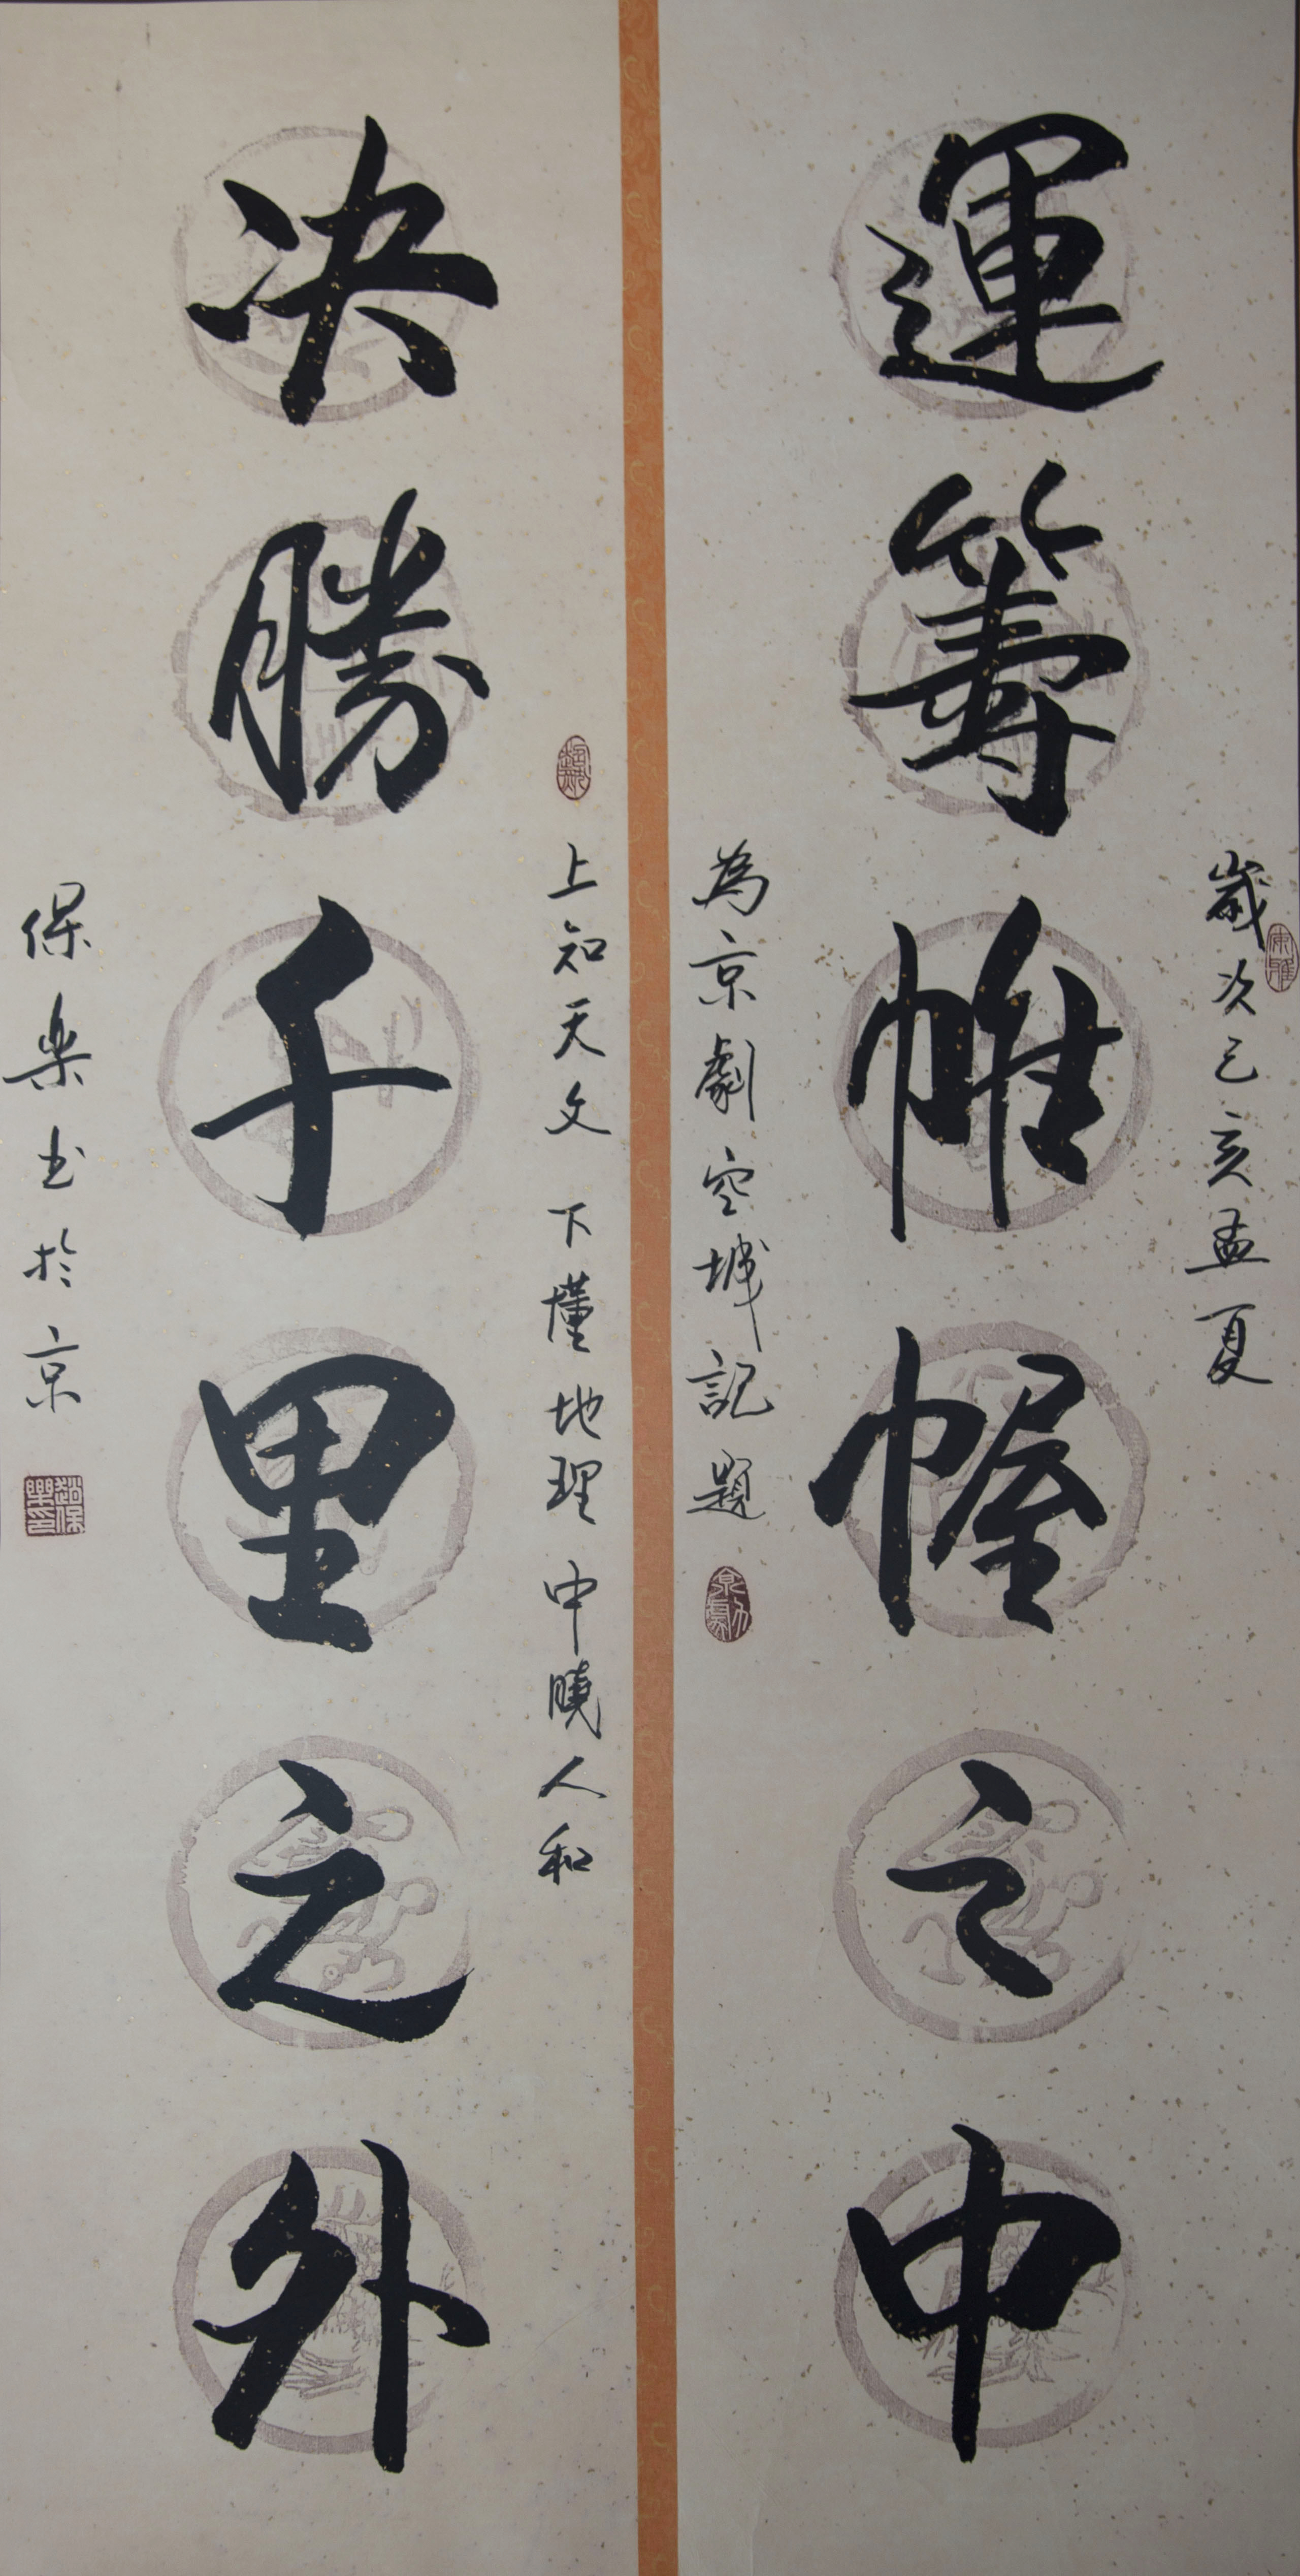 歲次己亥孟夏
運籌帷幄之中
為京劇空城記題
上知天文 下懂地理 中曉人和
決勝千里之外
保樂书於京
趙保樂印